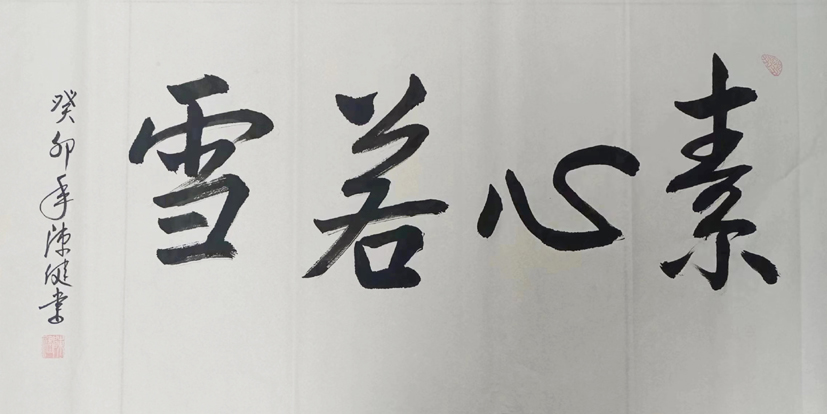 素心若雪
癸卯年陈健书